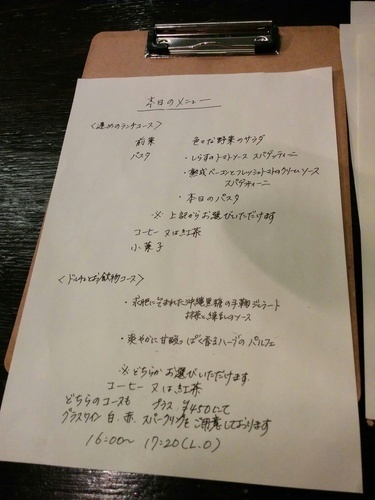 本日のメニュー
＜遅めのランチコース＞
前菜 色々な野菜のサラダ
パスタ ・しらすのトマトソース スパゲッティーニ
・熟成ベーコンとフレッシュトマトのクリームソース
スパゲティーニ
・本日のパスタ
※ 上記からお選びいただけます
コーヒー 又は 紅茶
小菓子
＜ドルチェとお飲物コース＞
・求肥に包まれた沖縄黒糖の手鞠ジェラート
抹茶と練乳のソース
・爽やかに甘酸っぱく香るハーブのパルフェ
※ どちらかお選びいただけます
コーヒー 又は 紅茶
どちらのコースも プラス ¥450にて
グラスワイン 白、赤、スパークリングをご用意しております
16:00〜 17:20(L.O)